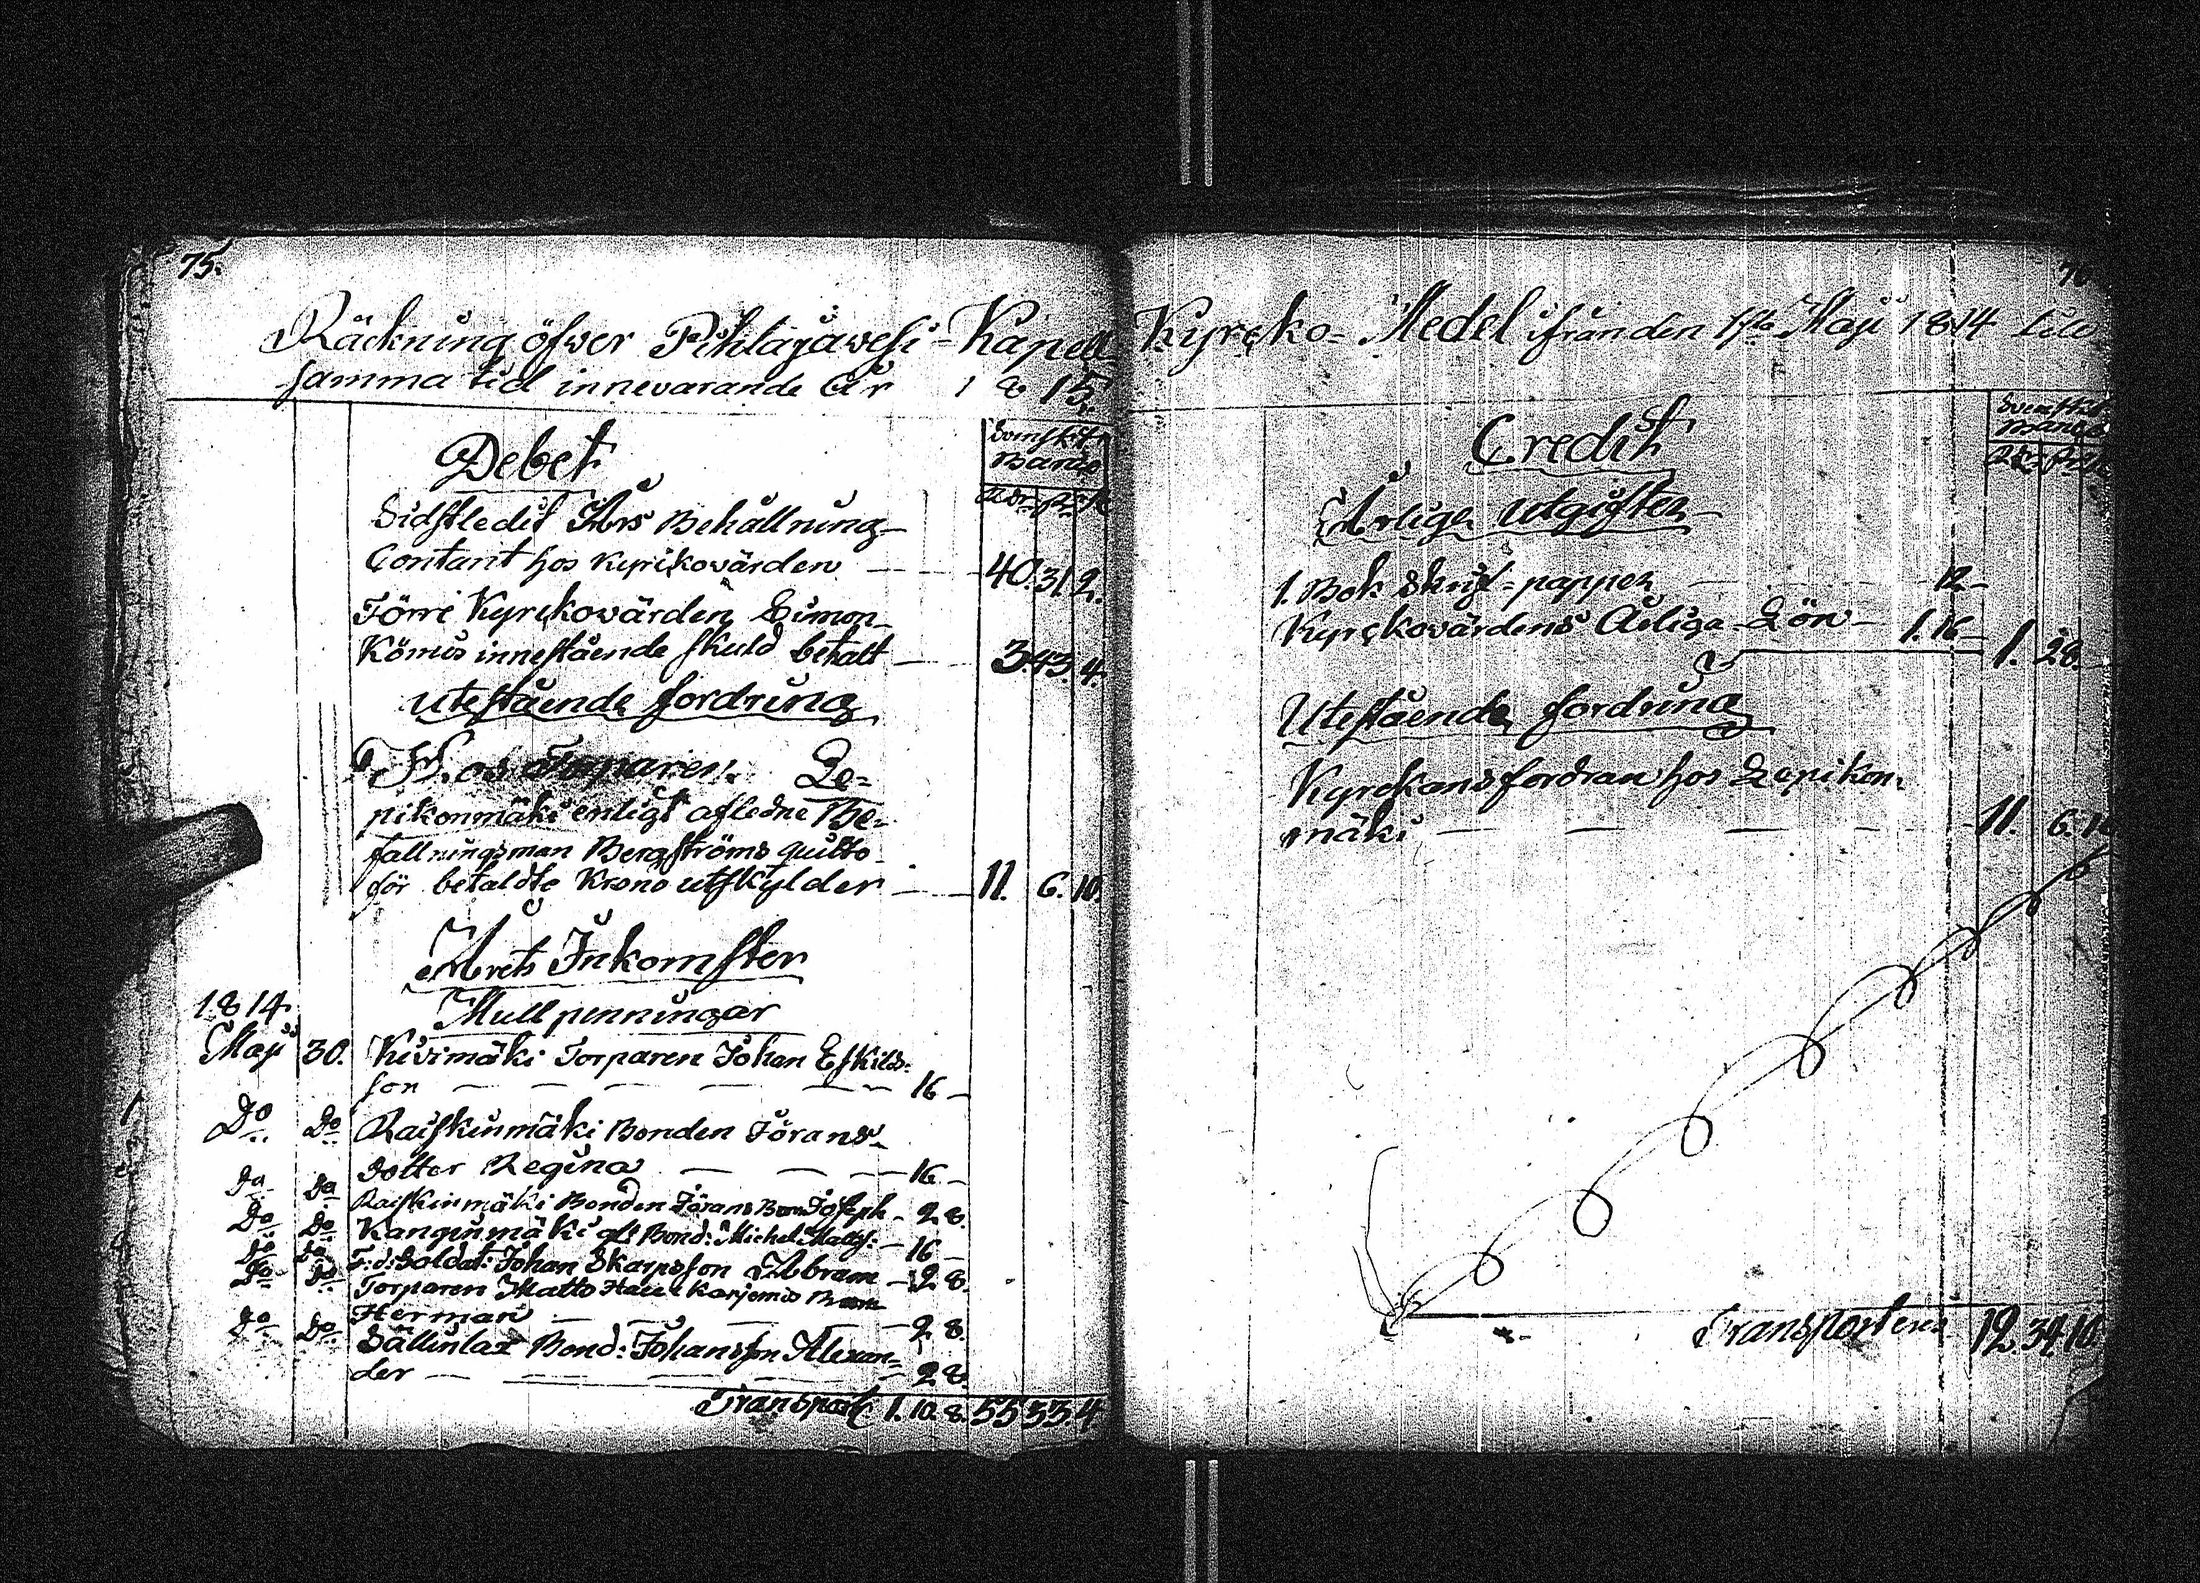 75.
Räckning öfver Pihlajavesi-Kapell
samma tid innevarande År 1815.
Debet
Svenskt
Banco
Rdr
Sidstledit Års Behållning
Contant hos Kyrikovärden — 40. 31. 2.
Förre Kyrckovärden Simon
Kömis innestående skuld betalt — 3. 43. 4.
Utestående fordring
Hos Torparen Le-
pikonmäki enligt afledne Be-
fallningsman Bergströms quitto
för betaldte Krono utskylder — 11. 6. 10.
Årets Inkomster
Mullpenningar
1814
Maji 30. Kivimäki Torparen Johan Eskils-
son — — — — — 16 —
Do Do Raiskinmäki Bonden Jörans
dotter Regina — — — 16. —
Do Do Raiskinmäki Bonden Jörans Barn Joseph — 2 8.
Do Do Kanginmäki aft Bond: Michel Matts: — 16 —
Do Do F:d: Soldat: Johan Skarpsson Abram — 2 8.
Do Do Torparen Matts Karjomis Barn
Herman — — — — — 2 8.
Do Do Sällinlax Bond: Johansson Alexan-
der — — — — — 2 8.
Transport 1. 10. 8. 55 33 4
76
Kyrcko-Medel ifrån den 1sta Maji 1814 till
Credit
Svenskt
Banco
Årlige utgifter
1. Bok Skrif-papper — 12 —
Kyrckovärdens Årliga Lön — 1. 16 —
1. 28.
Utestående fordring
Kyrckans fordran hos Lepikon-
mäki — — — — 11. 6. 10
Transporteras 12. 34 10